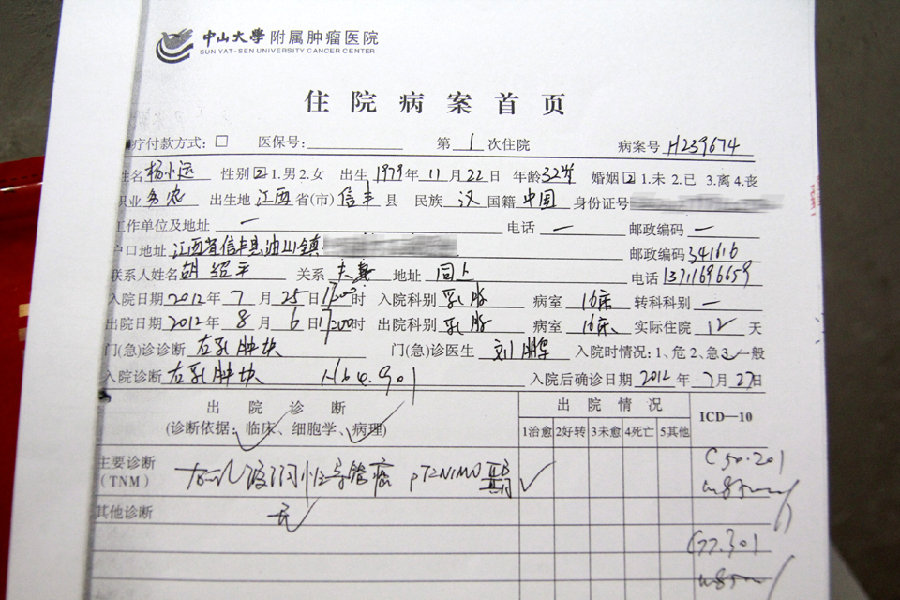 中山大學 附属肿瘤医院
SUN YAT-SEN UNIVERSITY CANCER CENTER
住院病案首页
疗付款方式: □ 医保号: 第 1 次住院 病案号 H239674
姓名 杨小运 性别 2 1.男 2.女 出生 1979 年 11 月 22 日 年龄 32岁 婚姻 2 1.未 2.已 3.离 4.丧
职业 务农 出生地 江西 省(市) 信丰 县 民族 汉 国籍 中国 身份证号
工作单位及地址 — 电话 — 邮政编码 —
户口地址 江西省信丰县油山镇 邮政编码 341616
联系人姓名 胡绍平 关系 夫妻 地址 同上 电话 13711696659
入院日期 2012 年 7 月 25 日 时 入院科别 乳腺 病室 16床 转科科别 —
出院日期 2012 年 8 月 6 日 1700时 出院科别 乳腺 病室 16床 实际住院 12 天
门(急)诊诊断 左乳肿块 门(急)诊医生 刘鹏 入院时情况: 1、危 2、急 一般
入院诊断 左乳肿块 N64.901 入院后确诊日期 2012 年 7 月 27日
出院诊断 出院情况 ICD—10
(诊断依据: 临床、细胞学、病理) 1治愈 2好转 3未愈 4死亡 5其他
主要诊断 左乳浸润性导管癌 pT2N1M0 ✓ C50.201
(TNM)
其他诊断 无
C77.301